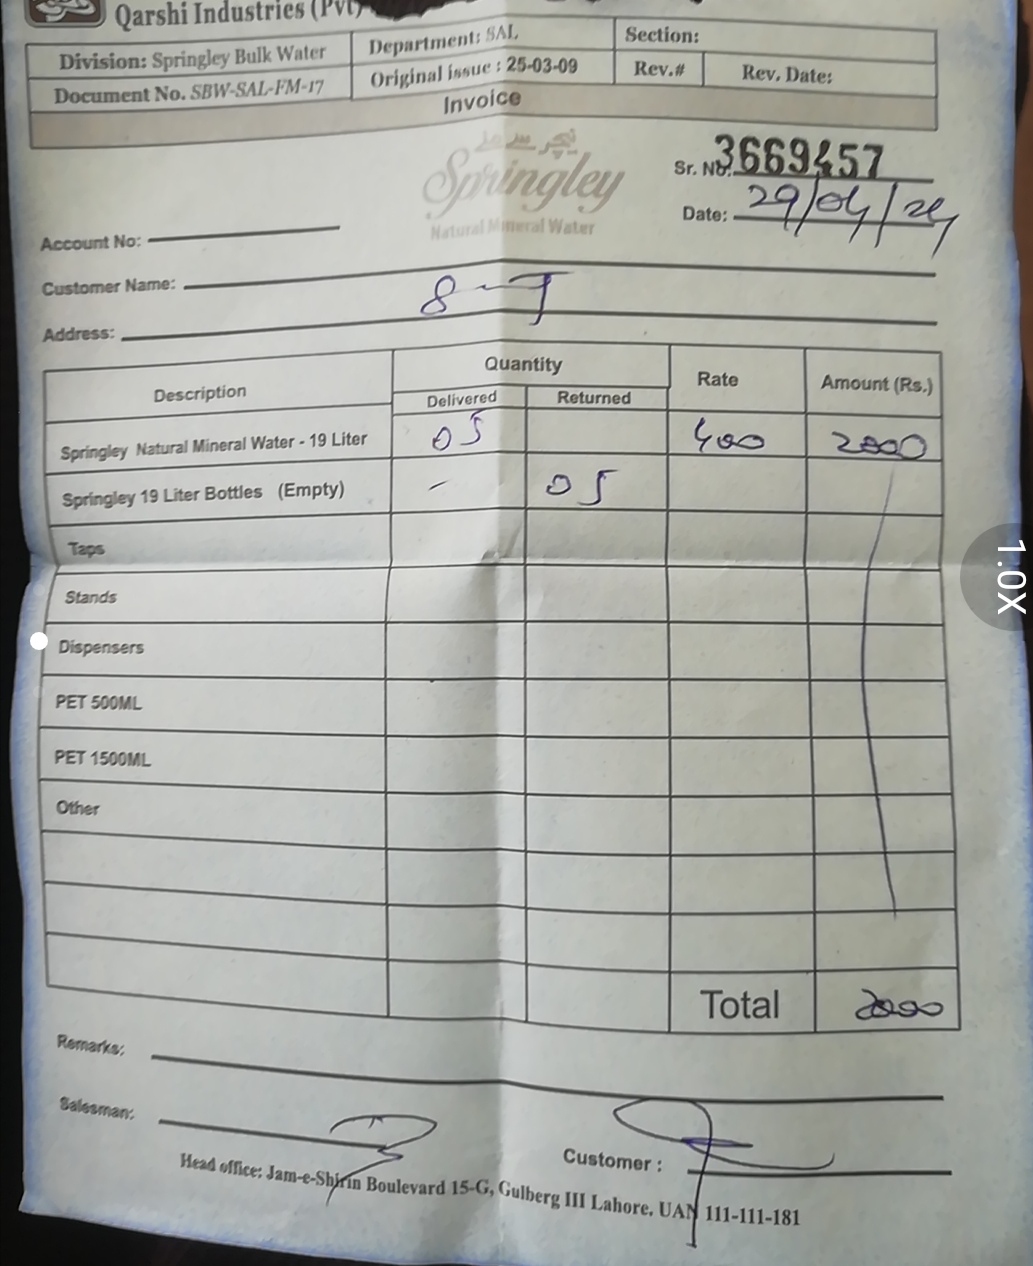 Qarshi Industries (Pvt)
Division: Springley Bulk Water
Department: SAL
Section:
Document No. SBW-SAL-FM-17
Original issue : 25-03-09
Rev.#
Rev. Date:
Invoice
Springley
Natural Mineral Water
Sr. No. 3669457
Date: 29/04/24
Account No:
Customer Name:
Address:
Description
Quantity
Rate
Amount (Rs.)
Delivered
Returned
Springley Natural Mineral Water - 19 Liter 05 400 2000
Springley 19 Liter Bottles (Empty) - 05
Taps
Stands
Dispensers
PET 500ML
PET 1500ML
Other
Total 2000
Remarks:
Salesman:
Customer :
Head office: Jam-e-Shirin Boulevard 15-G, Gulberg III Lahore. UAN 111-111-181
1.0X